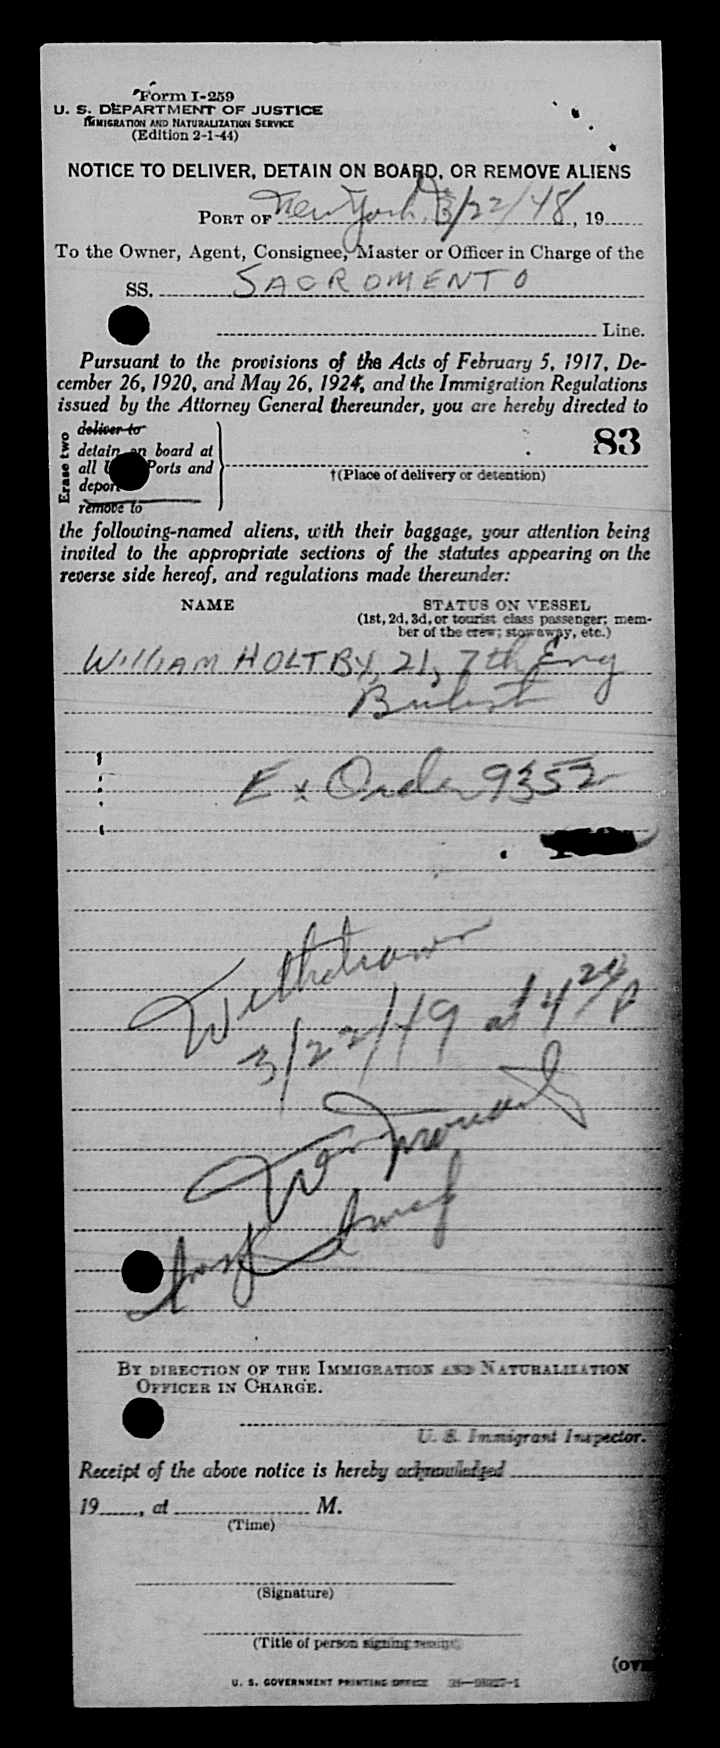 Form I-259
U. S. DEPARTMENT OF JUSTICE
IMMIGRATION AND NATURALIZATION SERVICE
(Edition 2-1-44)
NOTICE TO DELIVER, DETAIN ON BOARD, OR REMOVE ALIENS
PORT OF New York, 3/22/48, 19
To the Owner, Agent, Consignee, Master or Officer in Charge of the
SS. SACROMENTO
Line.
Pursuant to the provisions of the Acts of February 5, 1917, De-
cember 26, 1920, and May 26, 1924, and the Immigration Regulations
issued by the Attorney General thereunder, you are hereby directed to
Erase two
deliver to
detain on board at
all Ports and
deport
remove to
83
†(Place of delivery or detention)
the following-named aliens, with their baggage, your attention being
invited to the appropriate sections of the statutes appearing on the
reverse side hereof, and regulations made thereunder:
NAME STATUS ON VESSEL
(1st, 2d, 3d, or tourist class passenger; mem-
ber of the crew; stowaway, etc.)
WILLIAM HOLTBY, 21, 7th Eng
British
Ex Order 9352
Withdrawn
3/22/49 at 4 24 P
BY DIRECTION OF THE IMMIGRATION AND NATURALIZATION
OFFICER IN CHARGE.
U. S. Immigrant Inspector.
Receipt of the above notice is hereby acknowledged
19, at M.
(Time)
(Signature)
(Title of person signing receipt)
U. S. GOVERNMENT PRINTING OFFICE